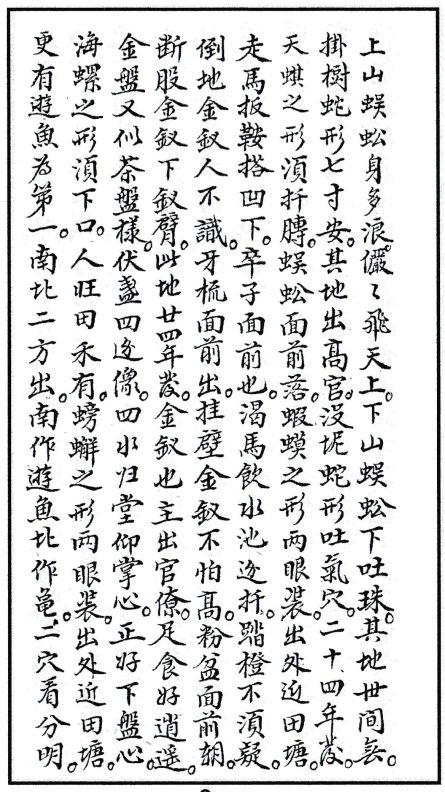 上山蜈蚣身多浪。儼〻飛天上。下山蜈蚣下吐珠。其地世间無。
掛樹蛇形七寸安。其地出高官。没坭蛇形吐氣穴。二十四年發。
天蜞之形須扦膊。蜈蚣面前落。蝦蟆之形兩眼裝。出外近田塘。
走馬扳鞍搭凹下。卒子面前也。渴馬飲水池边扦。踏櫈不須疑。
倒地金釵人不識。牙梳面前出。挂壁金釵不怕高。粉盆面前朝。
断股金釵下釵臂。此地廿四年發。金釵也主出官僚。足食好逍遥。
金盤又似茶盤樣。伏盞四边像。四水归堂仰掌心。正好下盤心。
海螺之形須下口。人旺田禾有。螃蠏之形兩眼裝。出外近田塘。
更有遊魚為第一。南北二方出。南作遊魚北作龟。二穴看分明。